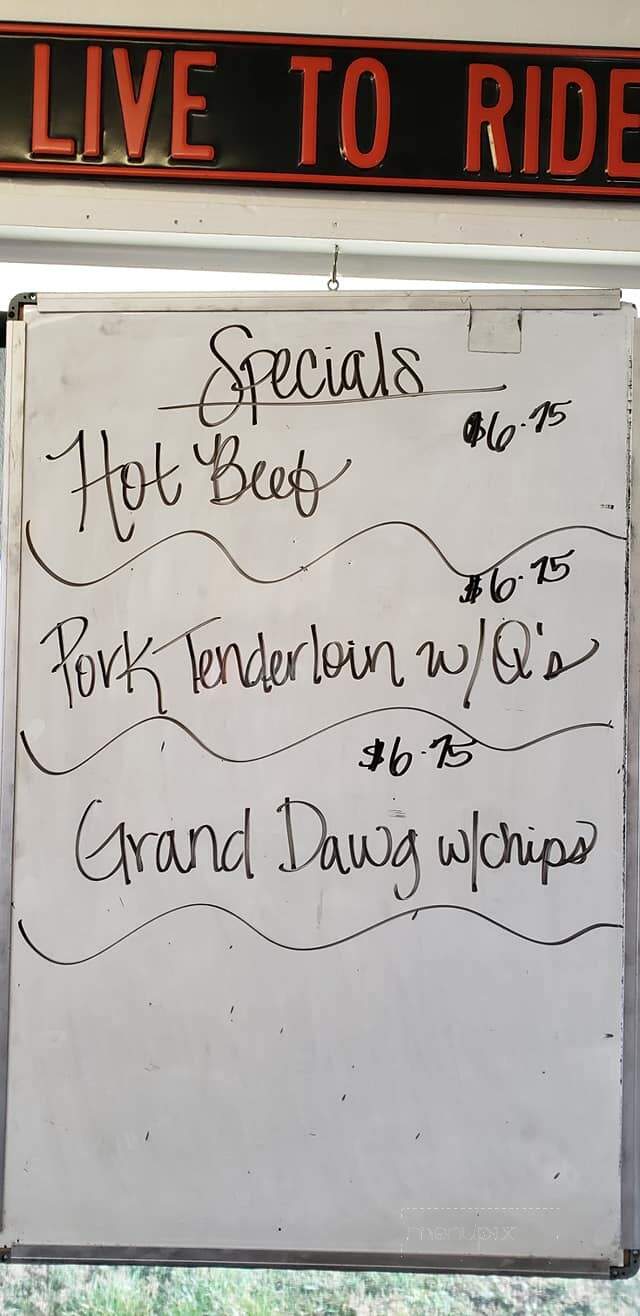 LIVE TO RIDE
Specials
$6.75
Hot Beef
$6.75
Pork Tenderloin w/Q's
$6.75
Grand Dawg w/chips
menupix